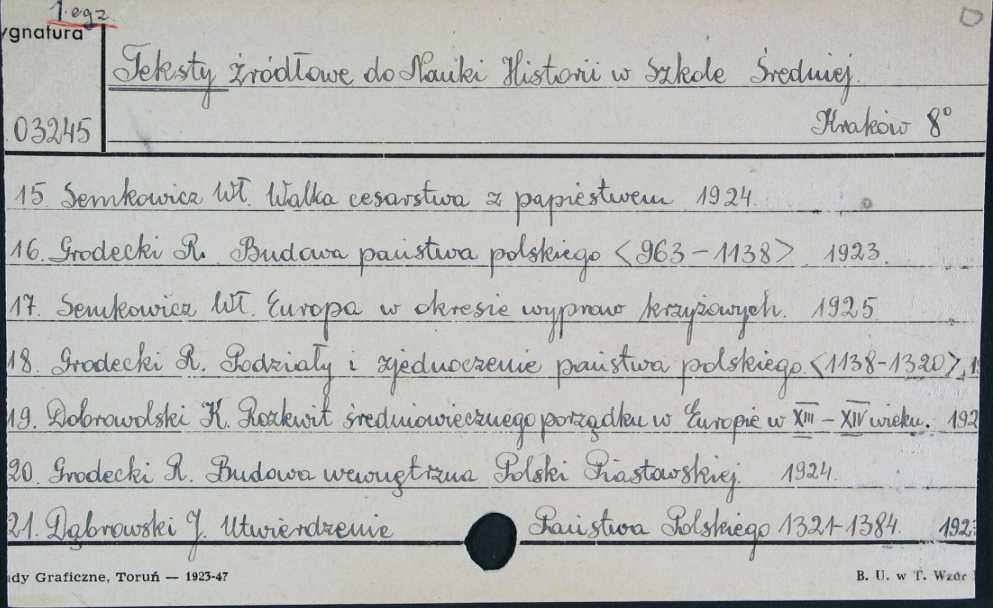 1. egz.
ygnatura
Teksty źródłowe do Nauki Historii w Szkole Średniej.
03245
Kraków 8°
15. Semkowicz Wł. Walka cesarstwa z papiestwem 1924.
16. Grodecki R. Budowa państwa polskiego <963-1138> 1923.
17. Semkowicz Wł. Europa w okresie wypraw krzyżowych. 1925
18. Grodecki R. Podziały i zjednoczenie państwa polskiego <1138-1320>, 1
19. Dobrowolski K. Rozkwit średniowiecznego porządku w Europie w XIII - XIV wieku. 192
20. Grodecki R. Budowa wewnętrzna Polski Piastowskiej. 1924.
21. Dąbrowski J. Utwierdzenie Państwa Polskiego 1321-1384. 192
ady Graficzne, Toruń — 1923-47
B. U. w T. Wzór